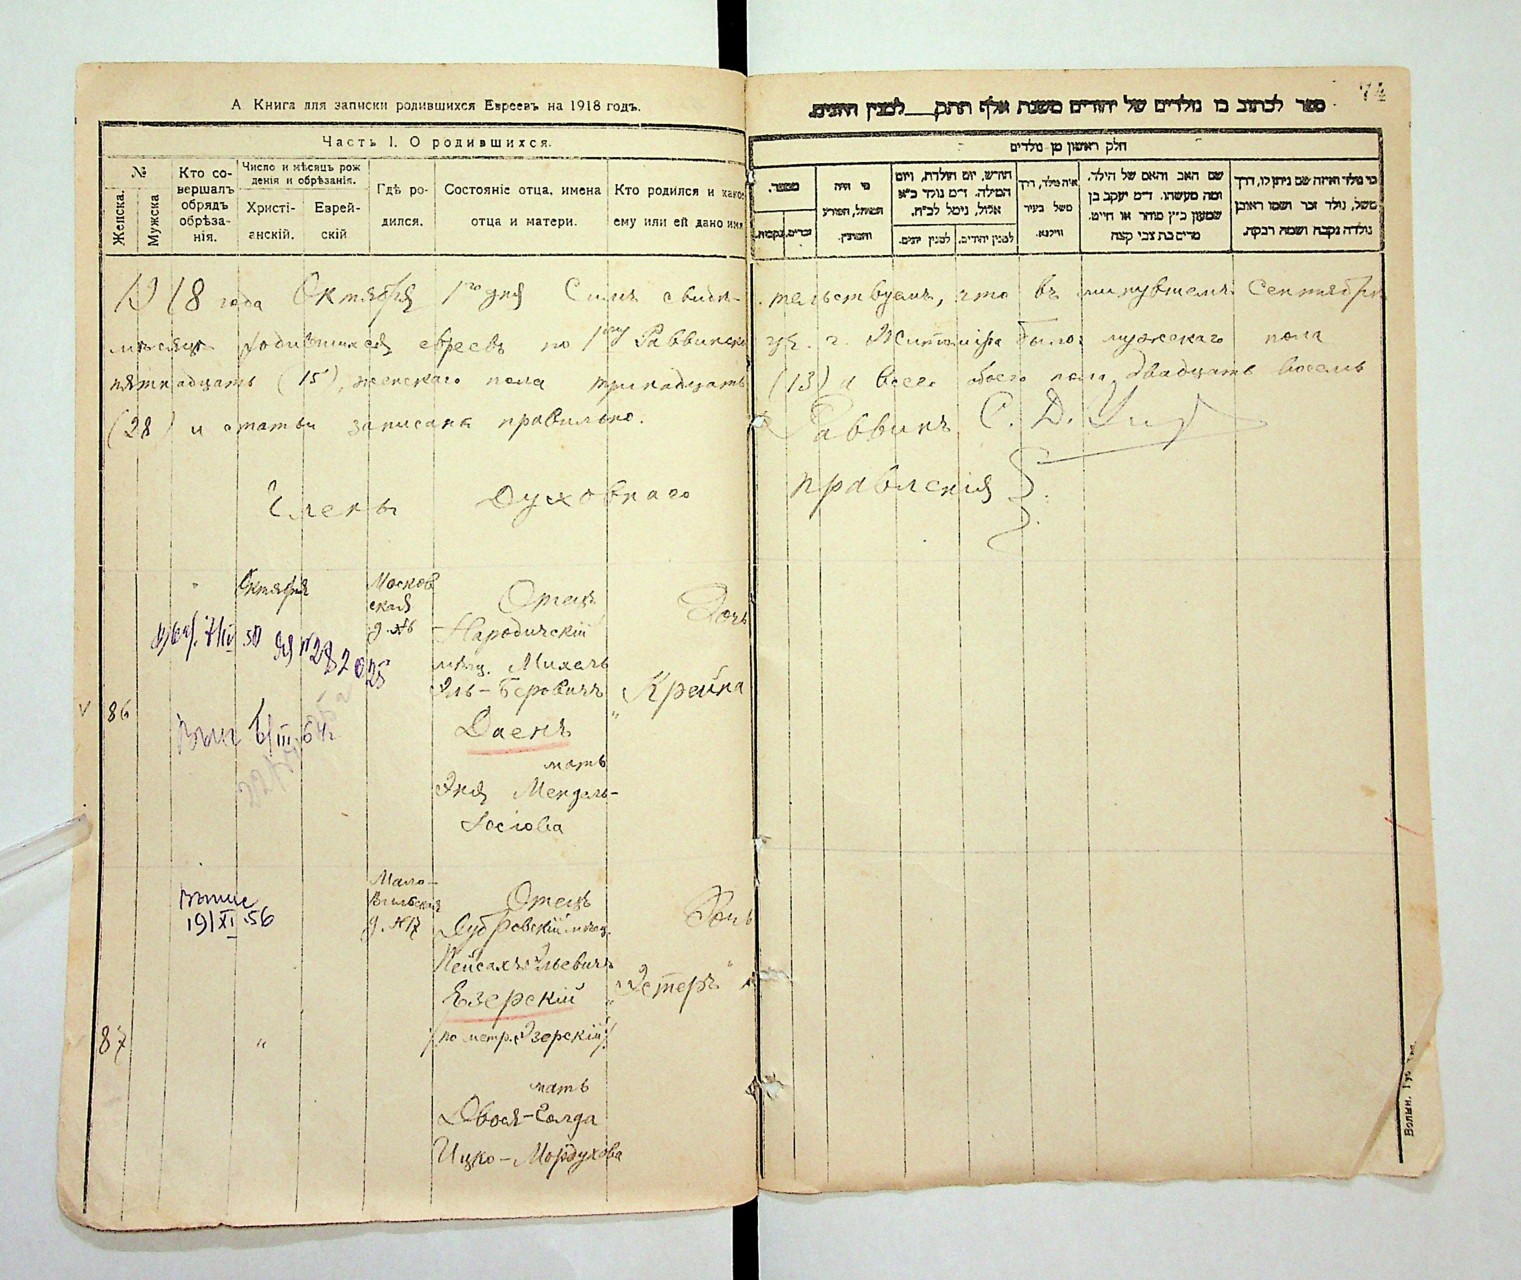 А Книга для записки родившихся Евреевъ на 1918 годъ.
Часть I. О родившихся.
№
Женска.
Мужска
Кто совершалъ обрядъ обрѣзанія.
Число и мѣсяцъ рожденія и обрѣзанія.
Христіанскій.
Еврейскій
Гдѣ родился.
Состояніе отца, имена отца и матери.
Кто родился и какое ему или ей дано имя
74
ספר לכתוב בו נולדים של יהודים משנת אלף תתק___למנין היונים.
חלק ראשון מן נולדים
מספר.
נקבות.
זכרים.
מי היה המוהל, הפורע והמוצץ.
החודש, יום הולדת, ויום המילה. ד״מ נולד כ״א אלול, נימל לכ״ח.
למנין יונים.
למנין יהודים.
איה נולד, דרך משל בעיר ווילנא.
שם האב והאם של הילד. ומה מעשהו. ד״מ יעקב בן שמעון כ״ץ סוחר או חייט. מרים בת צבי קצה
מי נולד ואיזה שם ניתן לו, דרך משל, נולד זכר ושמו ראובן נולדה נקבה ושמה רבקה.
1918 года Октября 1го дня Симъ свидѣтельствуемъ, что въ минувшемъ Сентябрѣ
мѣсяцѣ родившихся евреевъ по 1му Раввинско уч. г. Житоміра было: мужескаго пола
пятнадцать (15), женскаго пола тринадцать (13) а всего обоего пола двадцать восемь
(28) и статьи записаны правильно. Раввинъ С. Д.
Членъ Духовнаго правленія
86
Октября
Московская
д. №6
Отецъ
Народичскій
мѣщ. Михель
Эль-Беровичъ
Даенъ
мать
Эня Мендель-
Іосіова
Дочь
"Крейна"
№ 282025
Выпис 6/III 64г
87
"
Выпис
19/XI 56
Мало-
Вильская
д. №17
Отецъ
Дубровскій мѣщ.
Пейсахъ Эльевичъ
Езерскій
/по метр. Эзерскій/
мать
Двося-Голда
Ицко-Мордухова
Дочь
"Эстеръ"
Волын. Губ.